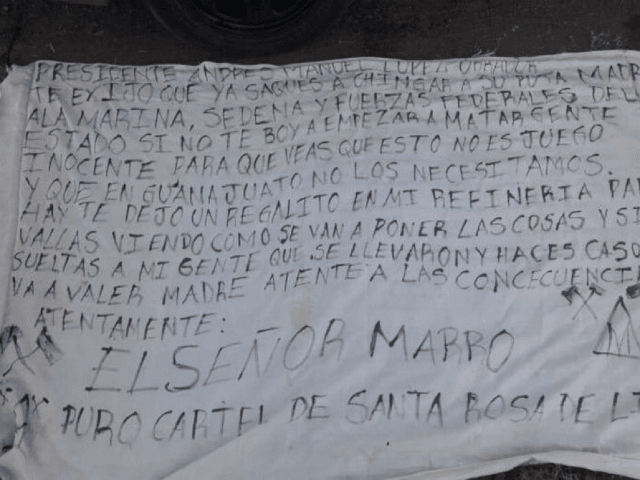 PRESIDENTE ANDRES MANUEL LOPEZ OBRADOR
TE EXIJO QUE YA SAQUES A CHINGAR A SU PUTA MADR
ALA MARINA, SEDENA Y FUERZAS FEDERALES DEL
ESTADO SI NO TE BOY A EMPEZAR A MATAR GENTE
INOCENTE PARA QUE VEAS QUE ESTO NO ES JUEGO
Y QUE EN GUANAJUATO NO LOS NECESITAMOS.
HAY TE DEJO UN REGALITO EN MI REFINERIA PAR
VALLAS VIENDO COMO SE VAN A PONER LAS COSAS Y SI
SUELTAS A MI GENTE QUE SE LLEVARON Y HACES CASO
VA A VALER MADRE ATENTE A LAS CONCECUENCI
ATENTAMENTE:
EL SEÑOR MARRO
PURO CARTEL DE SANTA ROSA DE LI